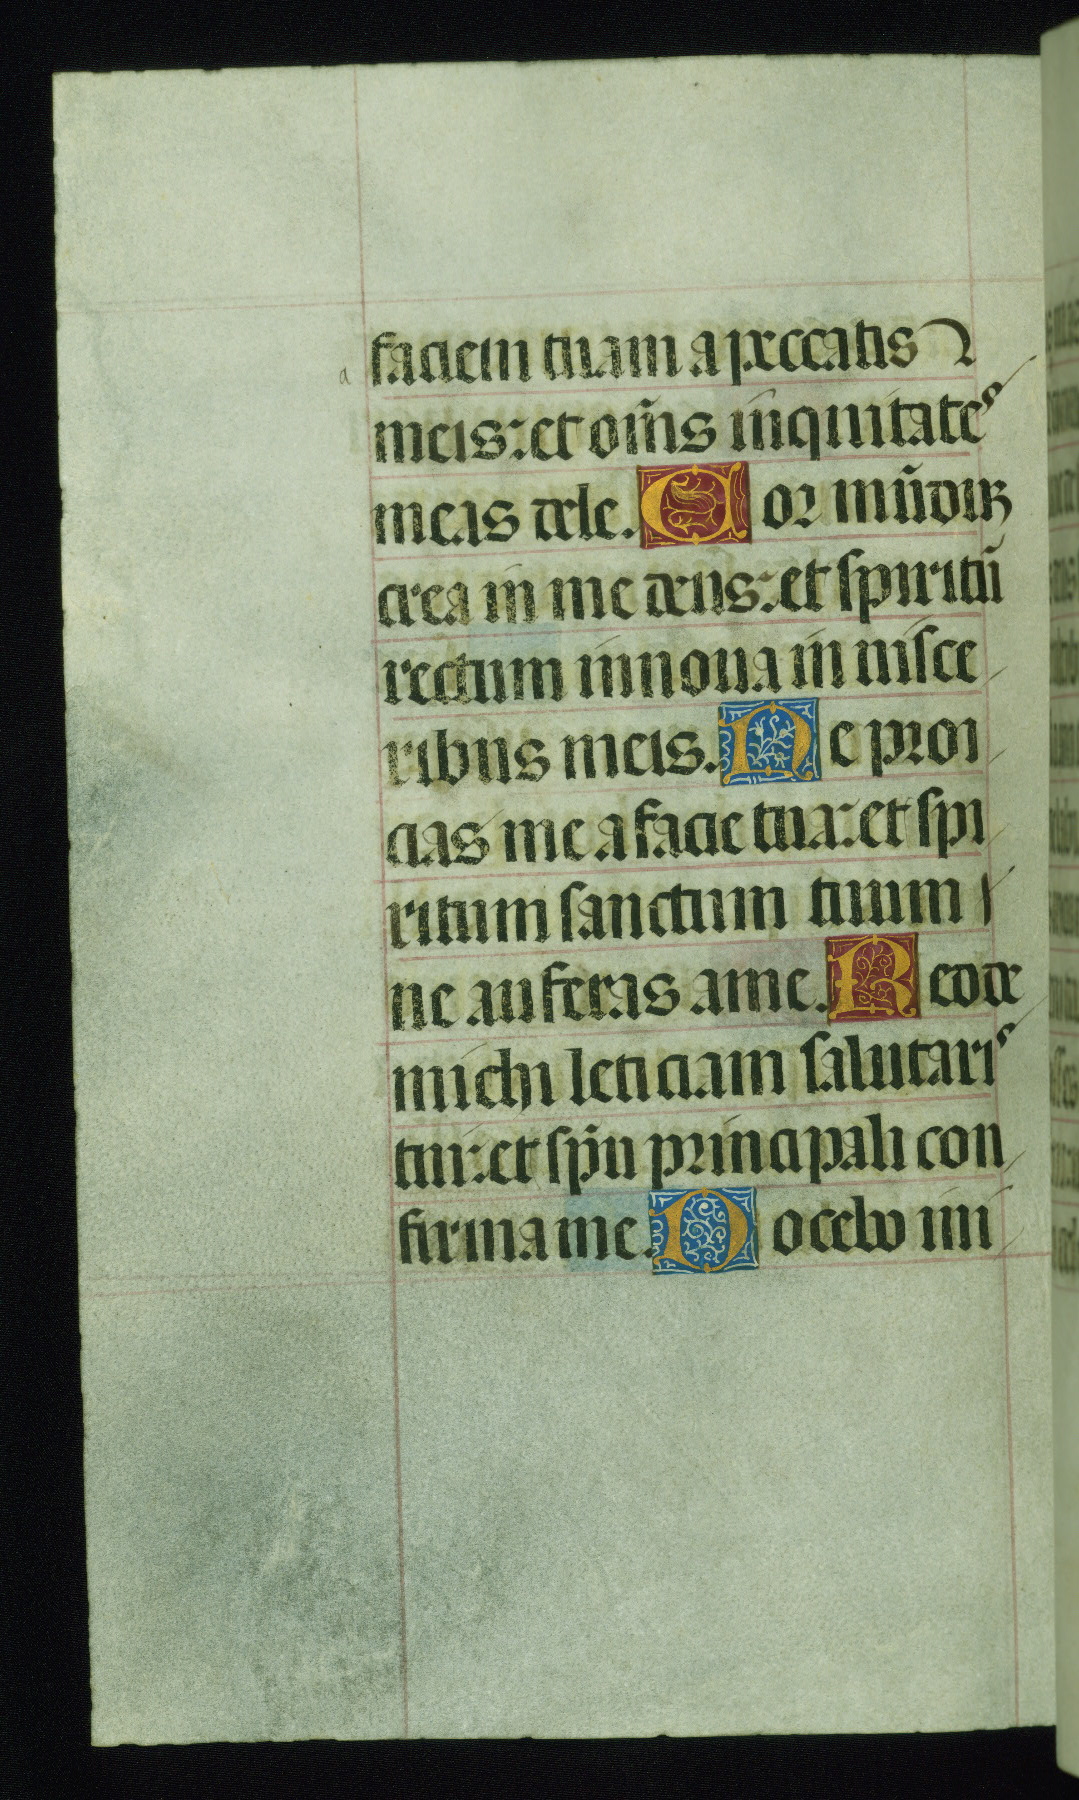 faciem tuam a peccatis
meis: et om̄s iniquitates
meas dele. Cor mūdū
crea in me deus: et spiritū
rectum innoua in uisce
ribus meis. Ne proi
cias me a facie tua: et spi
ritum sanctum tuum
ne auferas a me. Redde
michi leticiam salutaris
tui: et sp̄u principali con
firma me. Docebo ini